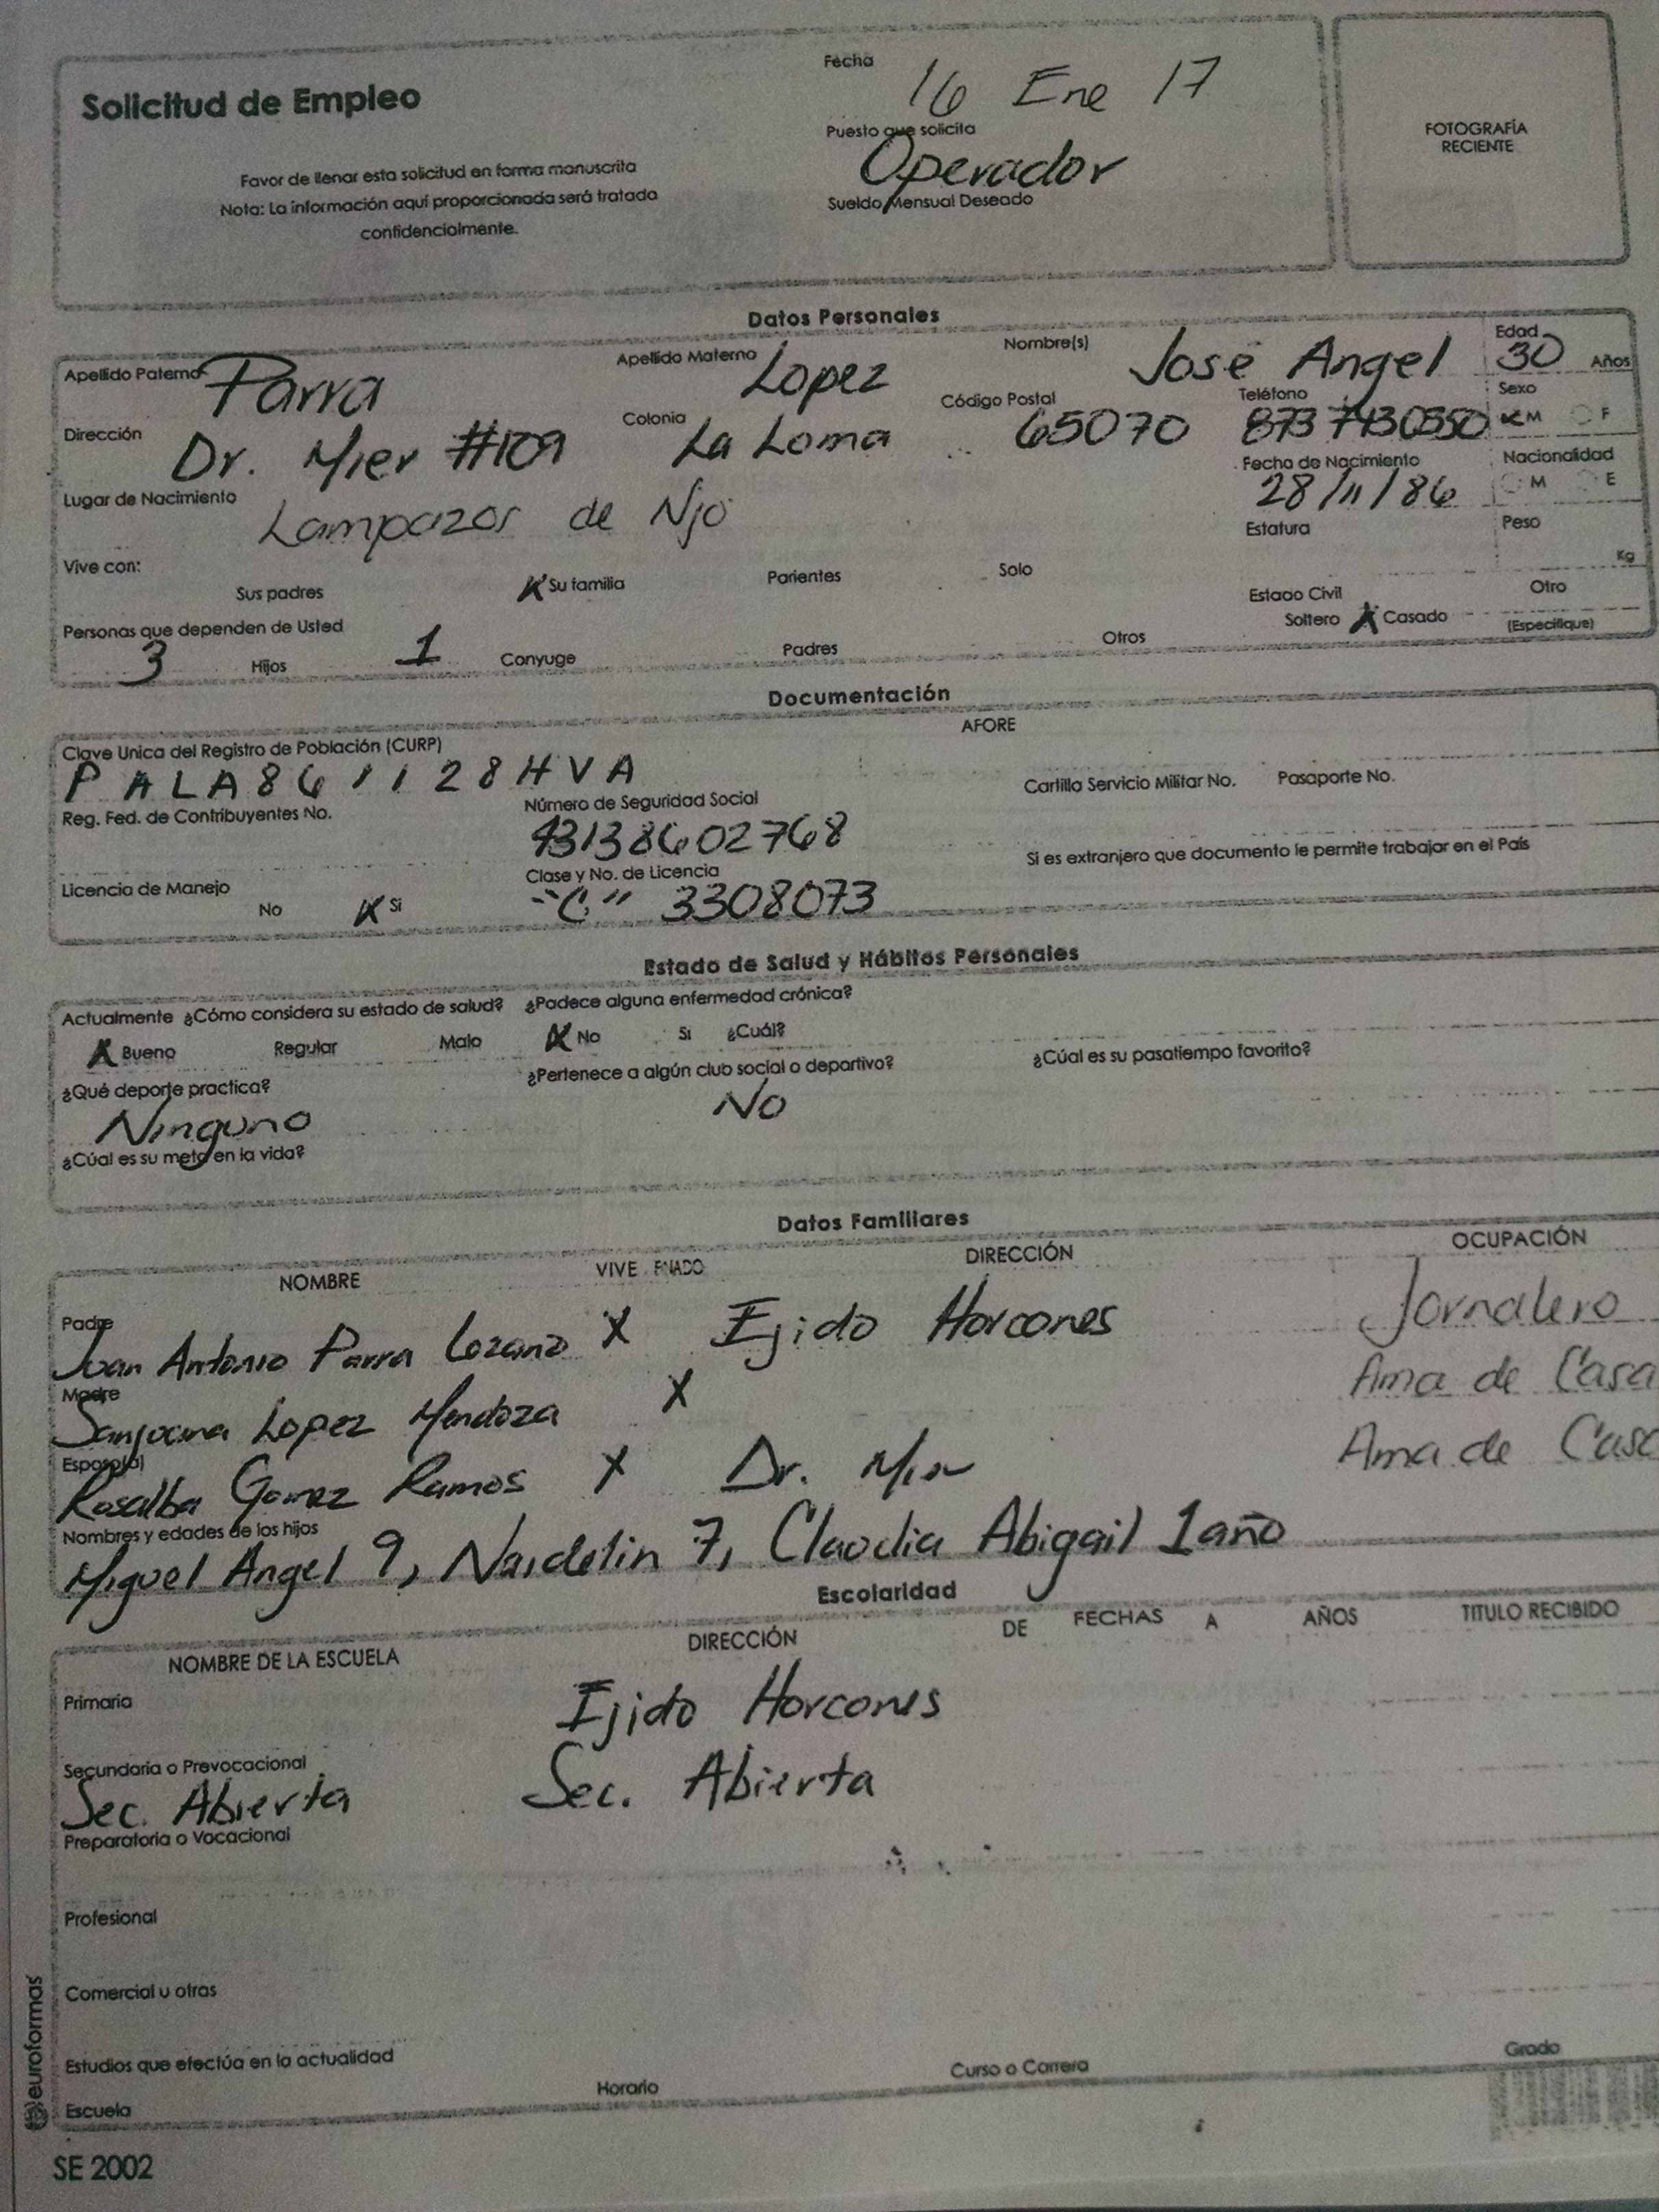 Solicitud de Empleo
Favor de llenar esta solicitud en forma manuscrita
Nota: La información aquí proporcionada será tratada
confidencialmente.
Fecha 16 Ene 17
Puesto que solicita
Operador
Sueldo Mensual Deseado
FOTOGRAFÍA
RECIENTE
Datos Personales
Apellido Paterno Parra Apellido Materno Lopez Nombre(s) José Angel Edad 30 Años
Dirección Dr. Mier #109 Colonia La Loma Código Postal 65070 Teléfono 873 7430550 Sexo M F
Lugar de Nacimiento Lampazos de Njo Fecha de Nacimiento 28/11/86 Nacionalidad M E
Estatura Peso Kg
Vive con: Sus padres X Su familia Parientes Solo Estado Civil Soltero X Casado Otro (Especifique)
Personas que dependen de Usted
3 Hijos 1 Conyuge Padres Otros
Documentación
Clave Unica del Registro de Población (CURP) AFORE
PALA861128HVA
Reg. Fed. de Contribuyentes No. Número de Seguridad Social Cartilla Servicio Militar No. Pasaporte No.
43138602768
Licencia de Manejo Clase y No. de Licencia Si es extranjero que documento le permite trabajar en el País
No X Si "C" 3308073
Estado de Salud y Hábitos Personales
Actualmente ¿Cómo considera su estado de salud? ¿Padece alguna enfermedad crónica?
X Bueno Regular Malo X No Si ¿Cuál?
¿Qué deporte practica? ¿Pertenece a algún club social o deportivo? ¿Cúal es su pasatiempo favorito?
Ninguno No
¿Cúal es su meta en la vida?
Datos Familiares
NOMBRE VIVE FINADO DIRECCIÓN OCUPACIÓN
Padre
Juan Antonio Parra Lozano X Ejido Horcones Jornalero
Madre
Sanjuana Lopez Mendoza X Ama de Casa
Esposo(a)
Rosalba Gomez Ramos X Dr. Mier Ama de Casa
Nombres y edades de los hijos
Miguel Angel 9, Naidelin 7, Claudia Abigail 1 año
Escolaridad
NOMBRE DE LA ESCUELA DIRECCIÓN DE FECHAS A AÑOS TITULO RECIBIDO
Primaria Ejido Horcones
Secundaria o Prevocacional
Sec. Abierta Sec. Abierta
Preparatoria o Vocacional
Profesional
Comercial u otras
Estudios que efectúa en la actualidad
Escuela Horario Curso o Carrera Grado
euroformas
SE 2002